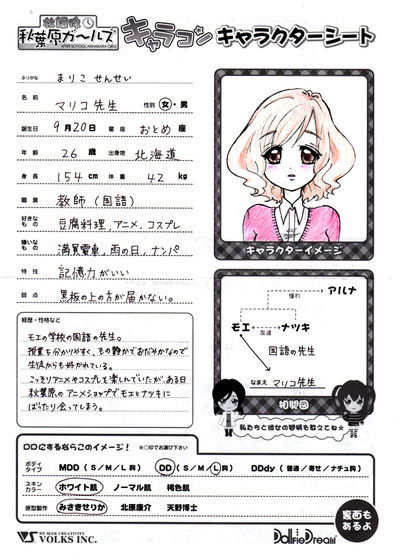 放課後
秋葉原ガ〜ルズ
AFTER SCHOOL AKIHABARA GIRLS
キャラコン キャラクターシート
ふりがな まりこ せんせい
名前 マリコ先生 性別 女・男
誕生日 9月20日 星座 おとめ座
年齢 26歳 出身地 北海道
身長 154cm 体重 42kg
職業 教師(国語)
好きなもの 豆腐料理,アニメ,コスプレ
嫌いなもの 満員電車,雨の日,ナンパ
特技 記憶力がいい
弱点 黒板の上の方が届かない。
キャラクターイメージ
経歴・性格など
モエの学校の国語の先生。
授業も分かりやすく、もの静かでおだやかなので
生徒からも好かれている。
こっそりアニメやコスプレを楽しんでいたが、ある日
秋葉原のアニメショップでモエとナツキに
ばったり会ってしまう。
アルナ
憧れ
モエ 友達 ナツキ
国語の先生
なまえ マリコ先生
相関図
私たちと彼女の関係を教えてね☆
DDにするならこのイメージ! ※○印でお選び下さい
ボディタイプ MDD(S/M/L胸) DD(S/M/L胸) DDdy(普通/寄せ/ナチュ胸)
スキンカラー ホワイト肌 ノーマル肌 褐色肌
原型製作 みさきせりか 北原康介 天野博士
裏面もあるよ
WE SEEK CREATIVITY
VOLKS INC.
DollfieDream